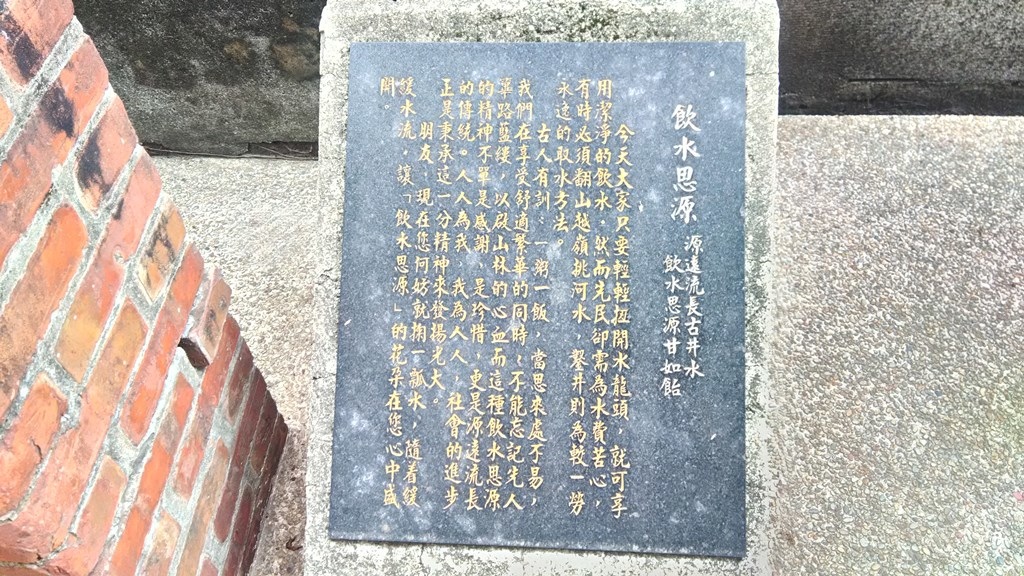 飲水思源
源遠流長古井水
飲水思源甘如飴
今天大家只要輕輕扭開水龍頭，就可享
用潔淨的飲水。然而先民卻需為水費苦心，
有時必須翻山越嶺挑河水，鑿井則為較一勞
永逸的取水方法。
古人有訓：一粥一飯，當思來處不易，
我們在享受舒適繁華的同時，不能忘記先人
篳路藍縷，以啟山林的心血而這種飲水思源
的精神不單是感謝、是珍惜，更是源遠流長
的傳統。人人為我，我為人人，社會的進步
正是秉承這一分精神來發揚光大。
朋友：現在您何妨就掬一瓢水，隨着緩
緩水流，讓「飲水思源」的花朵在您心中盛
開。